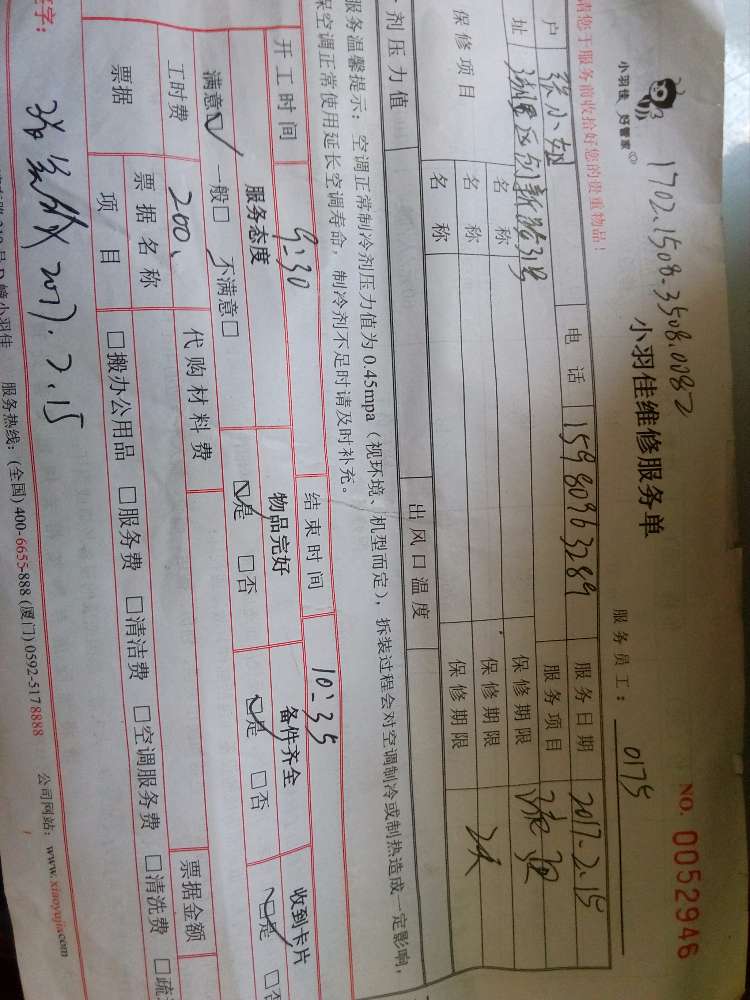 小羽佳 好管家
1702.1508.3508.0082
小羽佳维修服务单
NO. 0052946
请您于服务前收拾好您的贵重物品！
服务员工： 0175
户 电话 15980963289 服务日期 2017.2.15
址 创新路31号 服务项目
保修项目 名称 保修期限
名称 保修期限
名称 保修期限
剂压力值 出风口温度
服务温馨提示：空调正常制冷剂压力值为0.45mpa（视环境、机型而定），拆装过程会对空调制冷或制热造成一定影响，
保空调正常使用延长空调寿命，制冷剂不足时请及时补充。
开工时间 9:30 结束时间 10:35
服务态度 物品完好 备件齐全 收到卡片
满意☑ 一般□ 不满意□ ☑是 □否 ☑是 □否 ☑是 □否
工时费 200 代购材料费
票据 票据名称 票据金额
项目 □搬办公用品 □服务费 □清洁费 □空调服务费 □清洗费 □疏
字： 2017.2.15
小羽佳 服务热线：(全国) 400-6655-888 (厦门) 0592-5178888 公司网站：www.xiaoyujia.com